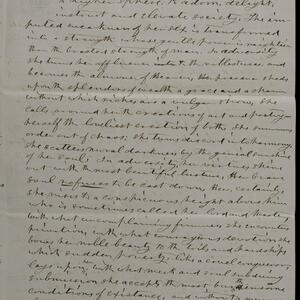 a higher sphere. To adorn, delight,
instruct and elevate society. The im-
puted weakness of her sex is transformed
into a strength whose gentle power is mightier
than the boasted strength of man. In adversity
she turns her affluence into and
becomes the almoner of Heaven. Her presence sheds
upon the splendors of wealth a grace and a charm
without which riches are a vulgar show. She
calls around her the creations of art and poetry—
herself the loveliest creation of both. She summons
order out of chaos. She turns discord into harmony.
She scatters moral darkness by the genial sunshine
of her soul. In adversity, her virtues shine
out with the most beautiful lustre. Her brave
soul refuses to be cast down. How certainly
she rises to a conspicuous height above him
who is sometimes called her lord and master,
with what uncomplaining firmness she encounters
privation, with what courageous devotion she
bows her noble beauty to the toils and hardships
which sudden poverty, like a cruel conqueror
lays upon, with what meek and soul subduing
submission she accepts the most burdensome
conditions of existence, and without a mur-